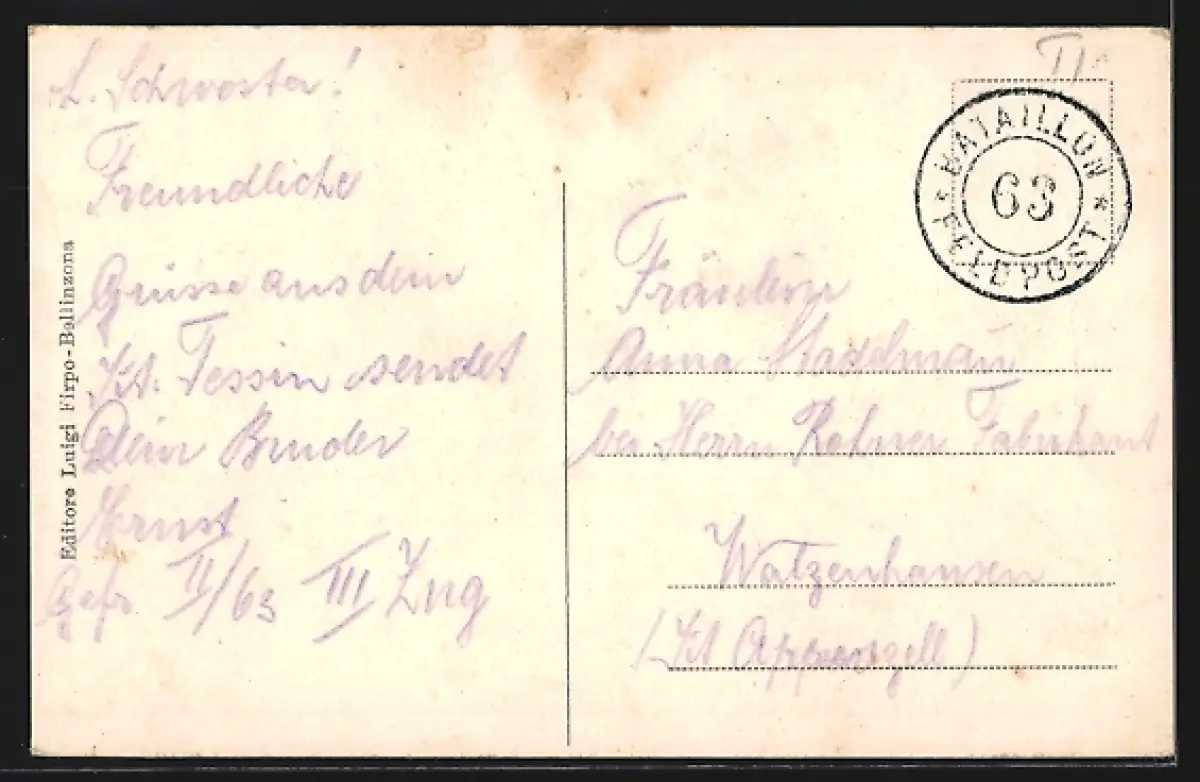 L. Schwester!
Freundliche
Grüsse aus dem
Kt. Tessin sendet
Dein Bruder
Ernst
Gefr. II/63 III Zug
Editore Luigi Firpo-Bellinzona
BATAILLON
63
* FELDPOST *
Fräulein
Anna
bei Herrn Fabrikant
Watzenhausen
(Kt Appenzell)